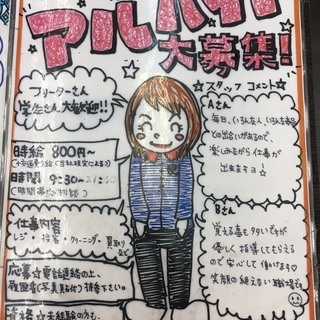 アルバイト
大募集!
フリーターさん
学生さん大歓迎!!
☆スタッフ コメント☆
Aさん
毎日、いろんな人、いろんな商品
との出会いがあるので、
楽しみながら仕事が
出来ますヨ☆
時給 800円〜
時間 9:30〜
(時間帯応相談)
仕事内容
レジ・接客・クリーニング・買取り
など
Bさん
覚える事も多いですが
優しく指導してもらえる
ので安心して働けます♡
笑顔の絶えない職場です
応募☆電話連絡の上、
履歴書(写真貼付)持参下さい。
資格☆未経験の方も、